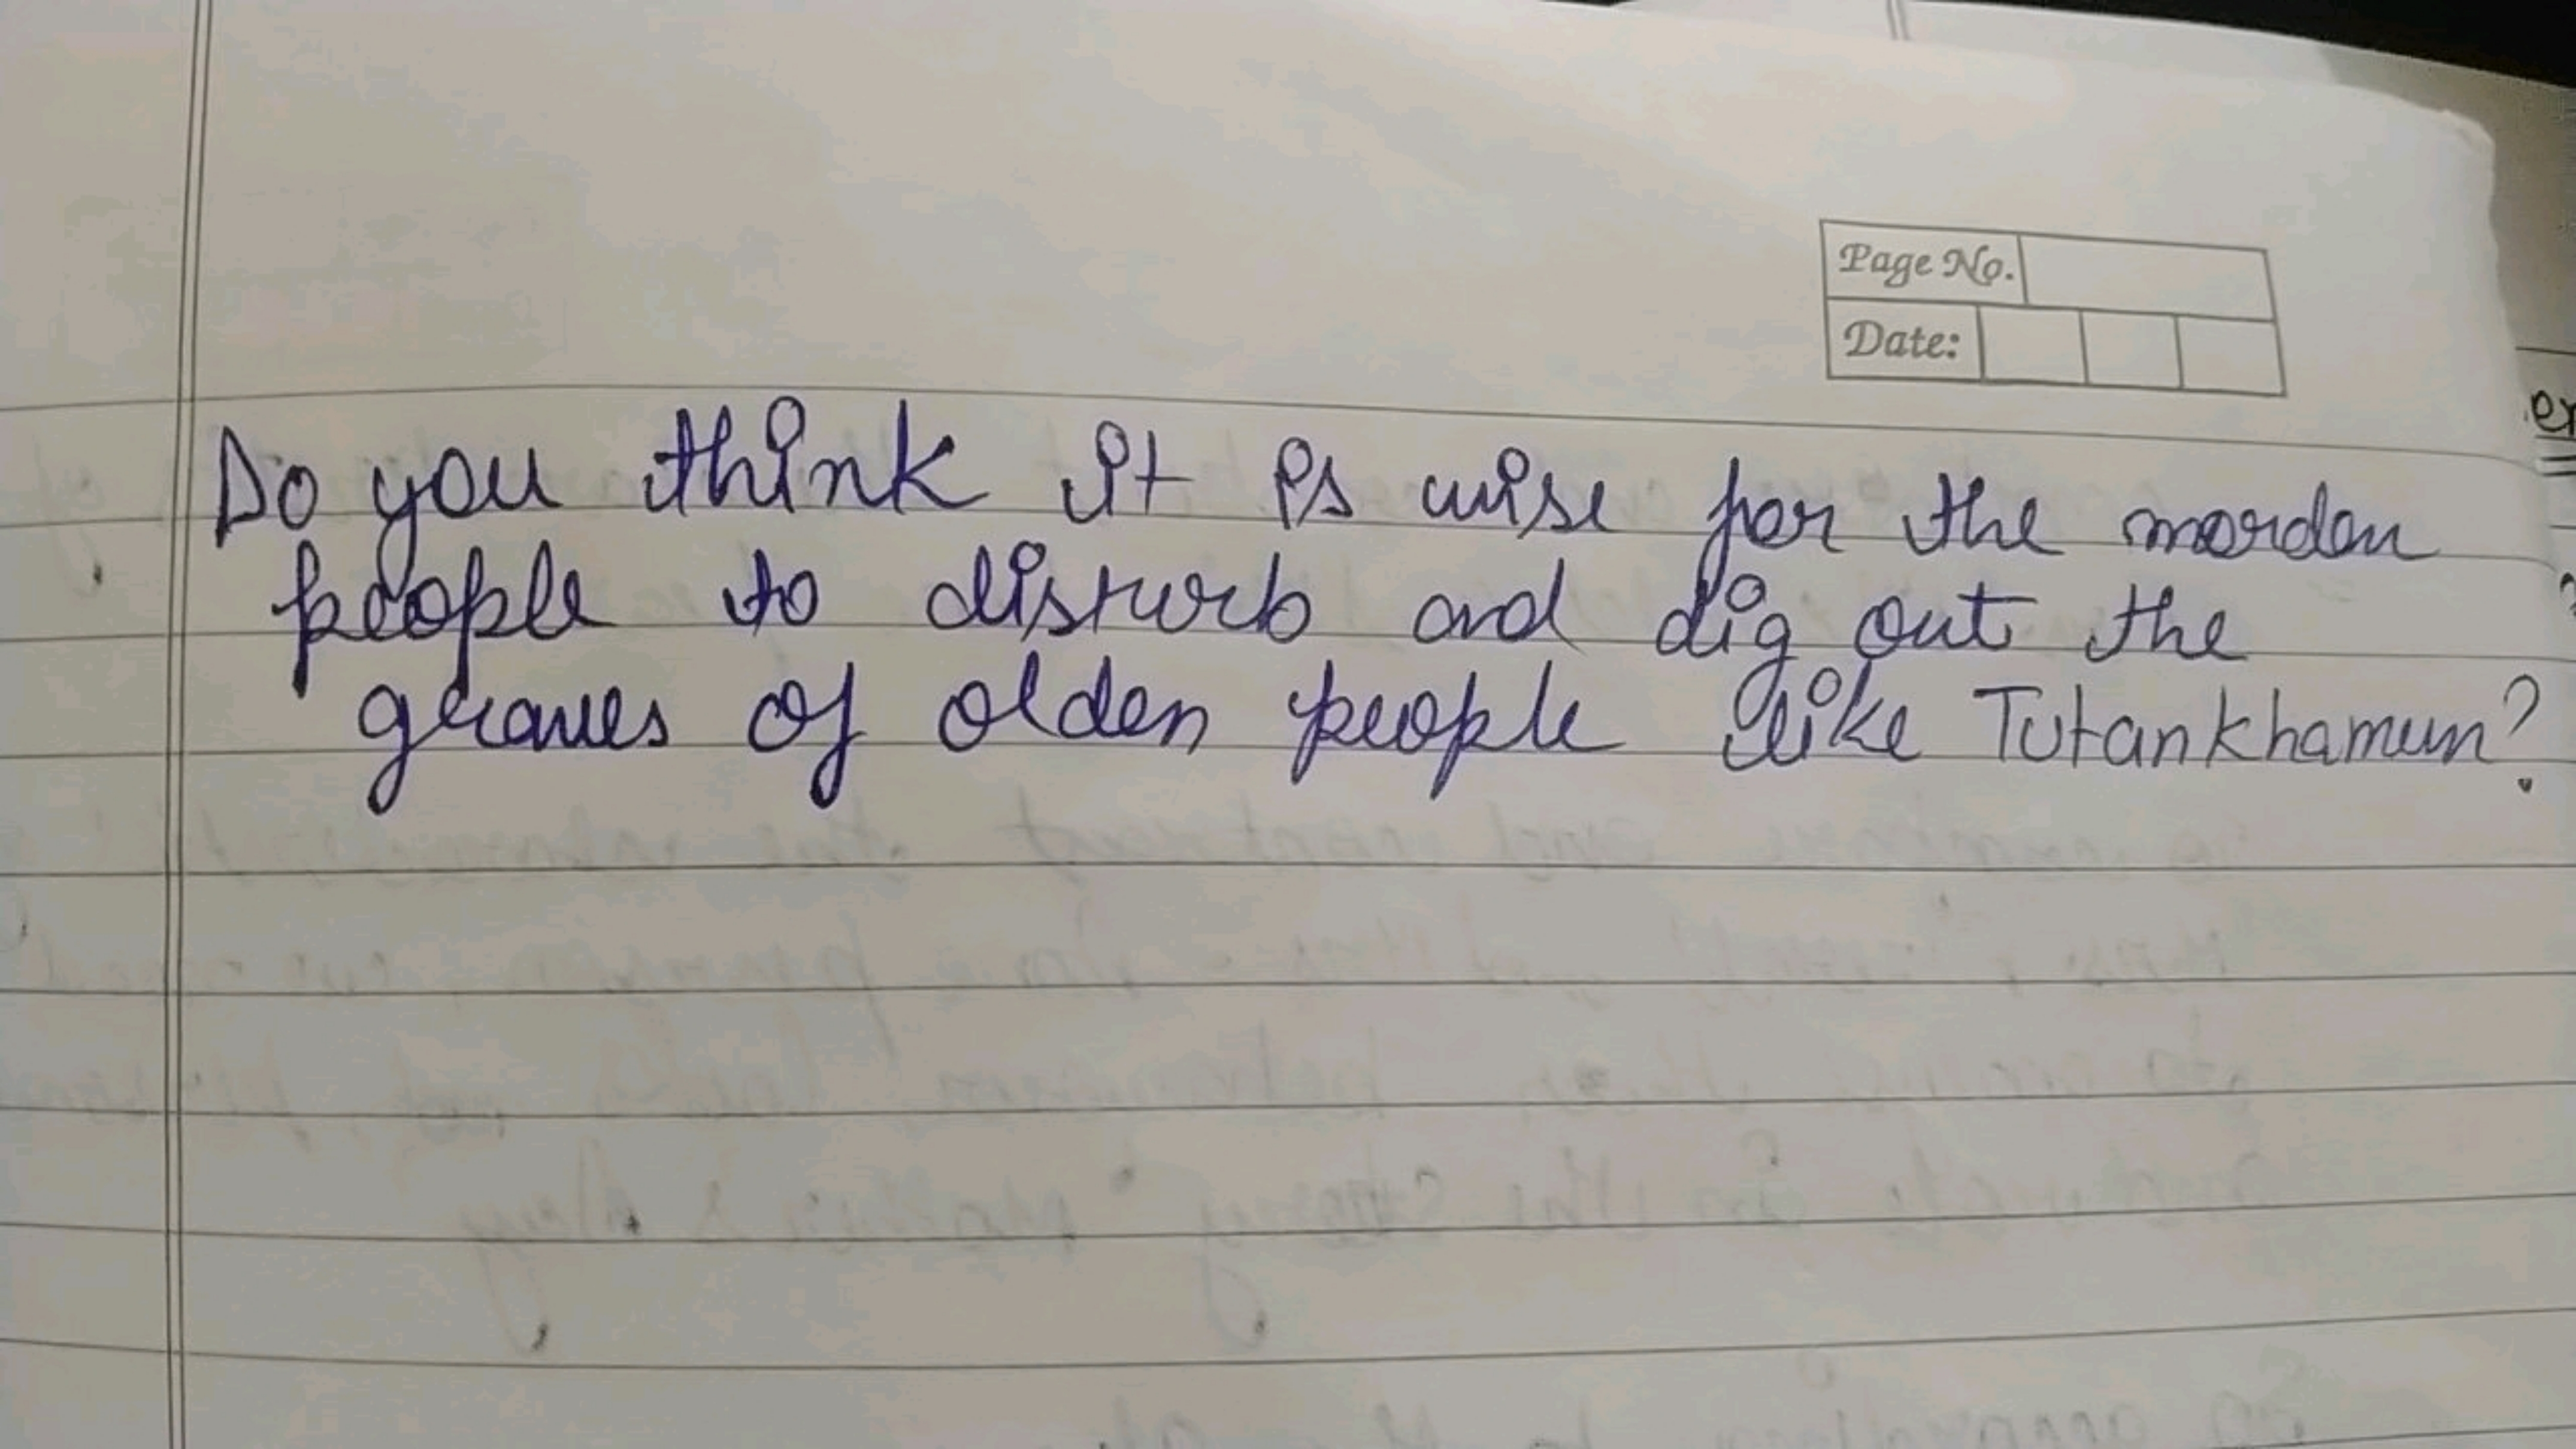 Page No.
Date:
Do you think it is wise for the morden
people to disturb and dig out the
graves of olden people like Tutankhamun?